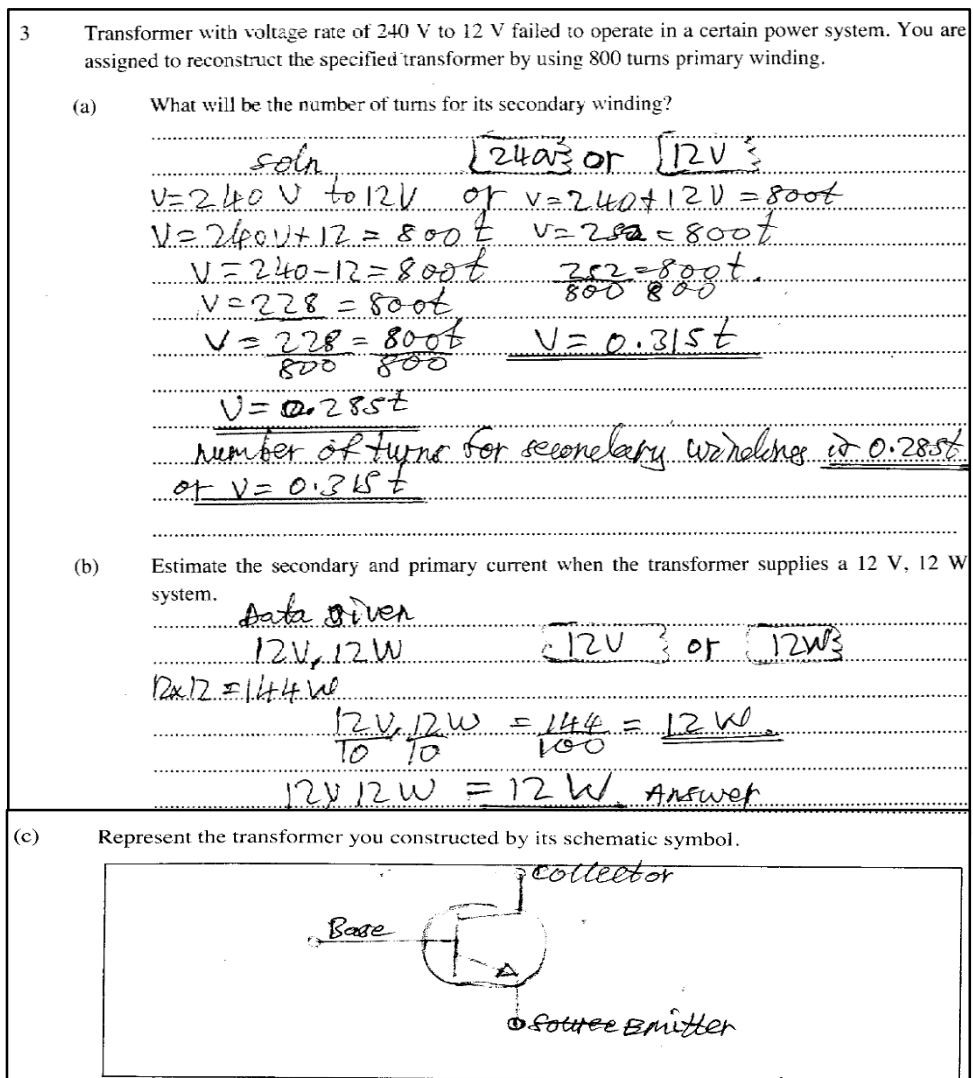 3 Transformer with voltage rate of 240 V to 12 V failed to operate in a certain power system. You are
assigned to reconstruct the specified transformer by using 800 turns primary winding.
(a) What will be the number of turns for its secondary winding?
soln [240V} or [12V}
V=240 V to 12V or V=240+12V =800t
V=240V+12=800t V=252=800t
V=240-12=800t 252=800t.
800 800
V=228=800t
V=228=800t V=0.315t
800 800
V=0.285t
Number of turns for secondary windings is 0.285t
or V=0.315t
(b) Estimate the secondary and primary current when the transformer supplies a 12 V, 12 W
system.
Data given
12V, 12W {12V} or {12W}
12x12=144W
12V, 12W = 144 = 12W.
10 10 100
12V 12W = 12W Answer
(c) Represent the transformer you constructed by its schematic symbol.
Collector
Base
Source Emitter